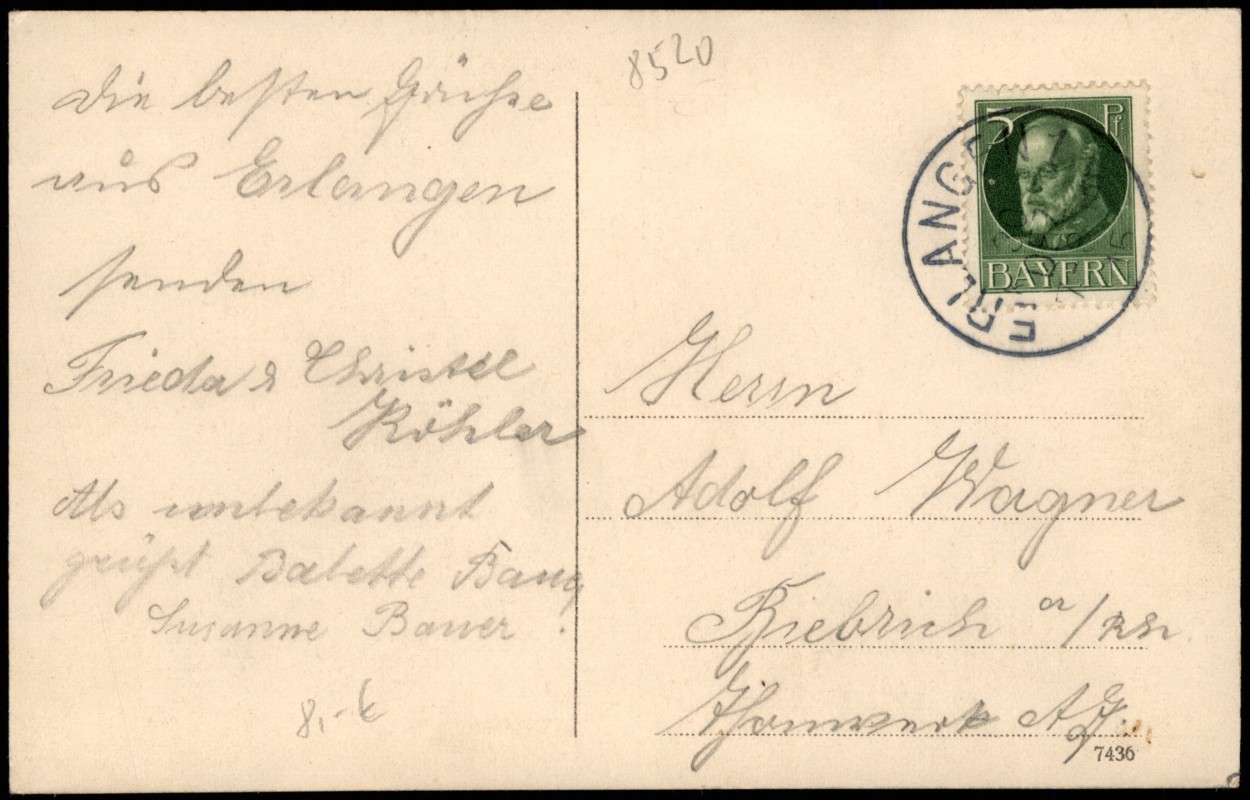 8520
die besten Grüsse
aus Erlangen
senden
Frieda & Christel
Köhler
Als unbekannt
grüßt Babette
Susanne Bauer.
8,-
5 Pf
BAYERN
ERLANGEN 1
Herrn
Adolf Wagner
Biebrich a/Rh
Thonwerk A.G.
7436